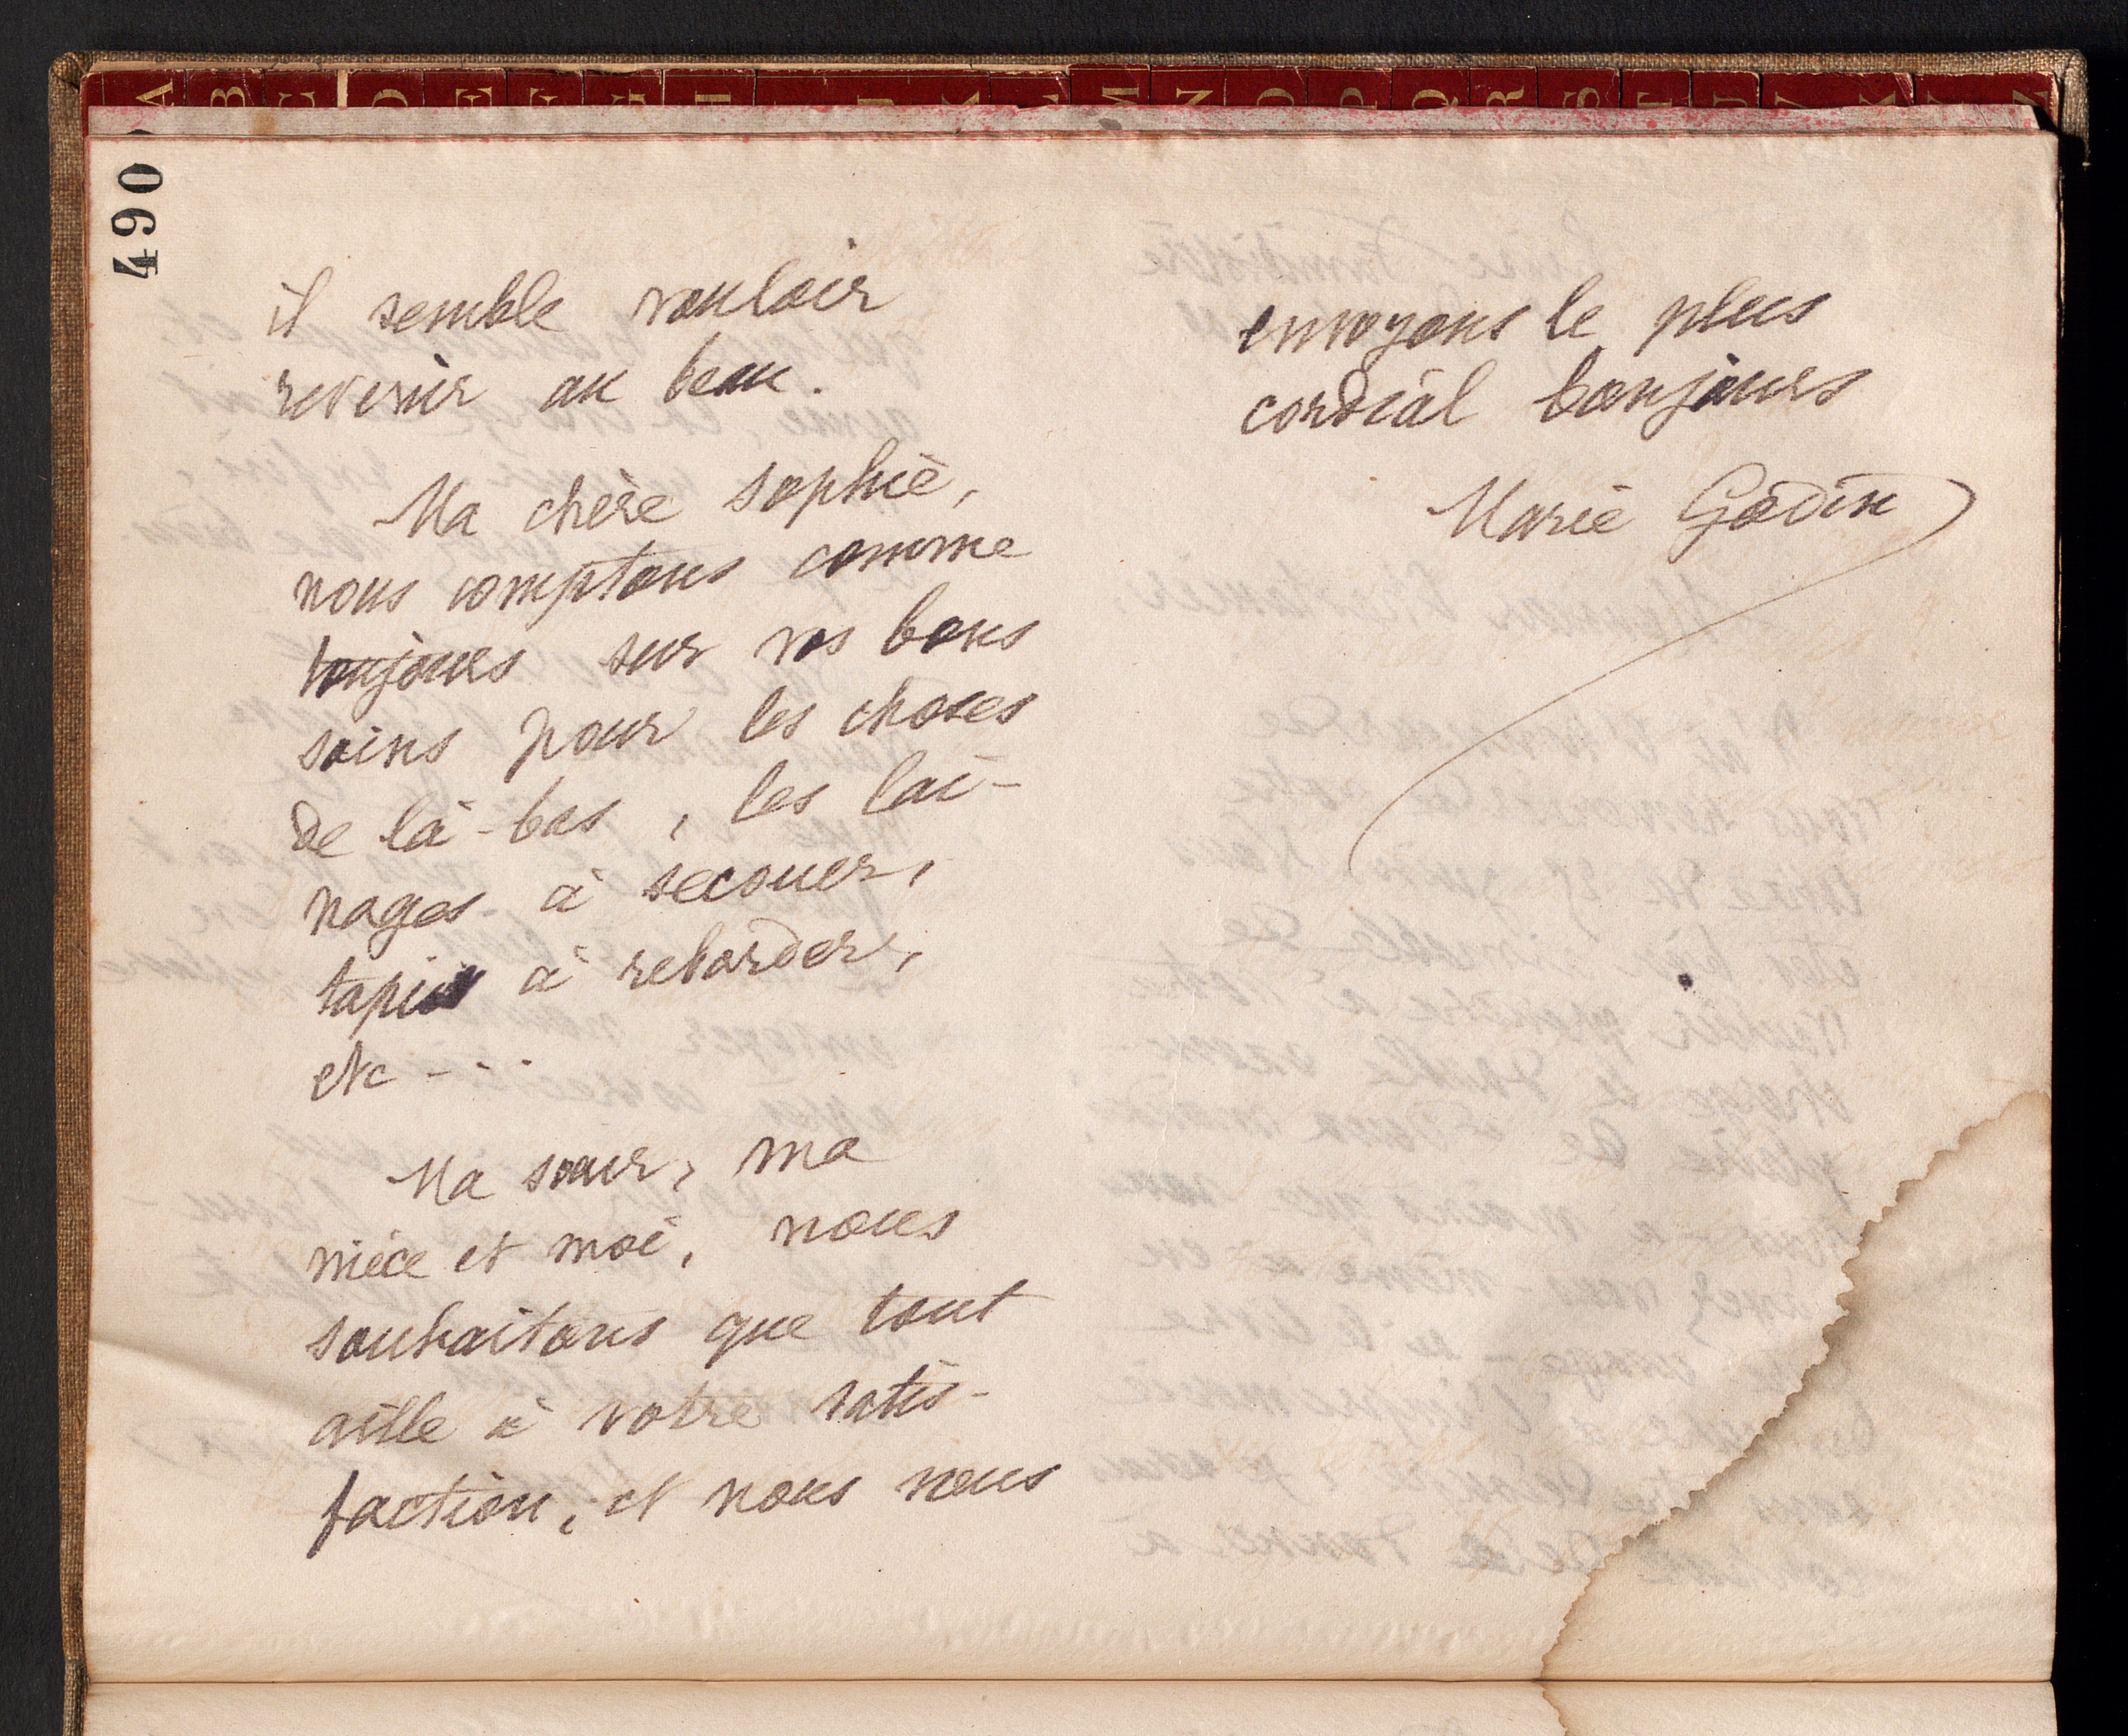 A B C D E F G H I J K L M N O P Q R S T U V X Y Z
490
il semble vouloir
revenir au beau.
Ma chère sophie,
nous comptons comme
toujours sur vos bons
soins pour les choses
de là-bas, les lai-
nages à secouer,
tapis à reborder,
etc - - -
Ma sœur, ma
nièce et moi, nous
souhaitons que tout
aille à votre satis-
faction, et nous vous
envoyons le plus
cordial bonjours
Marie Godin